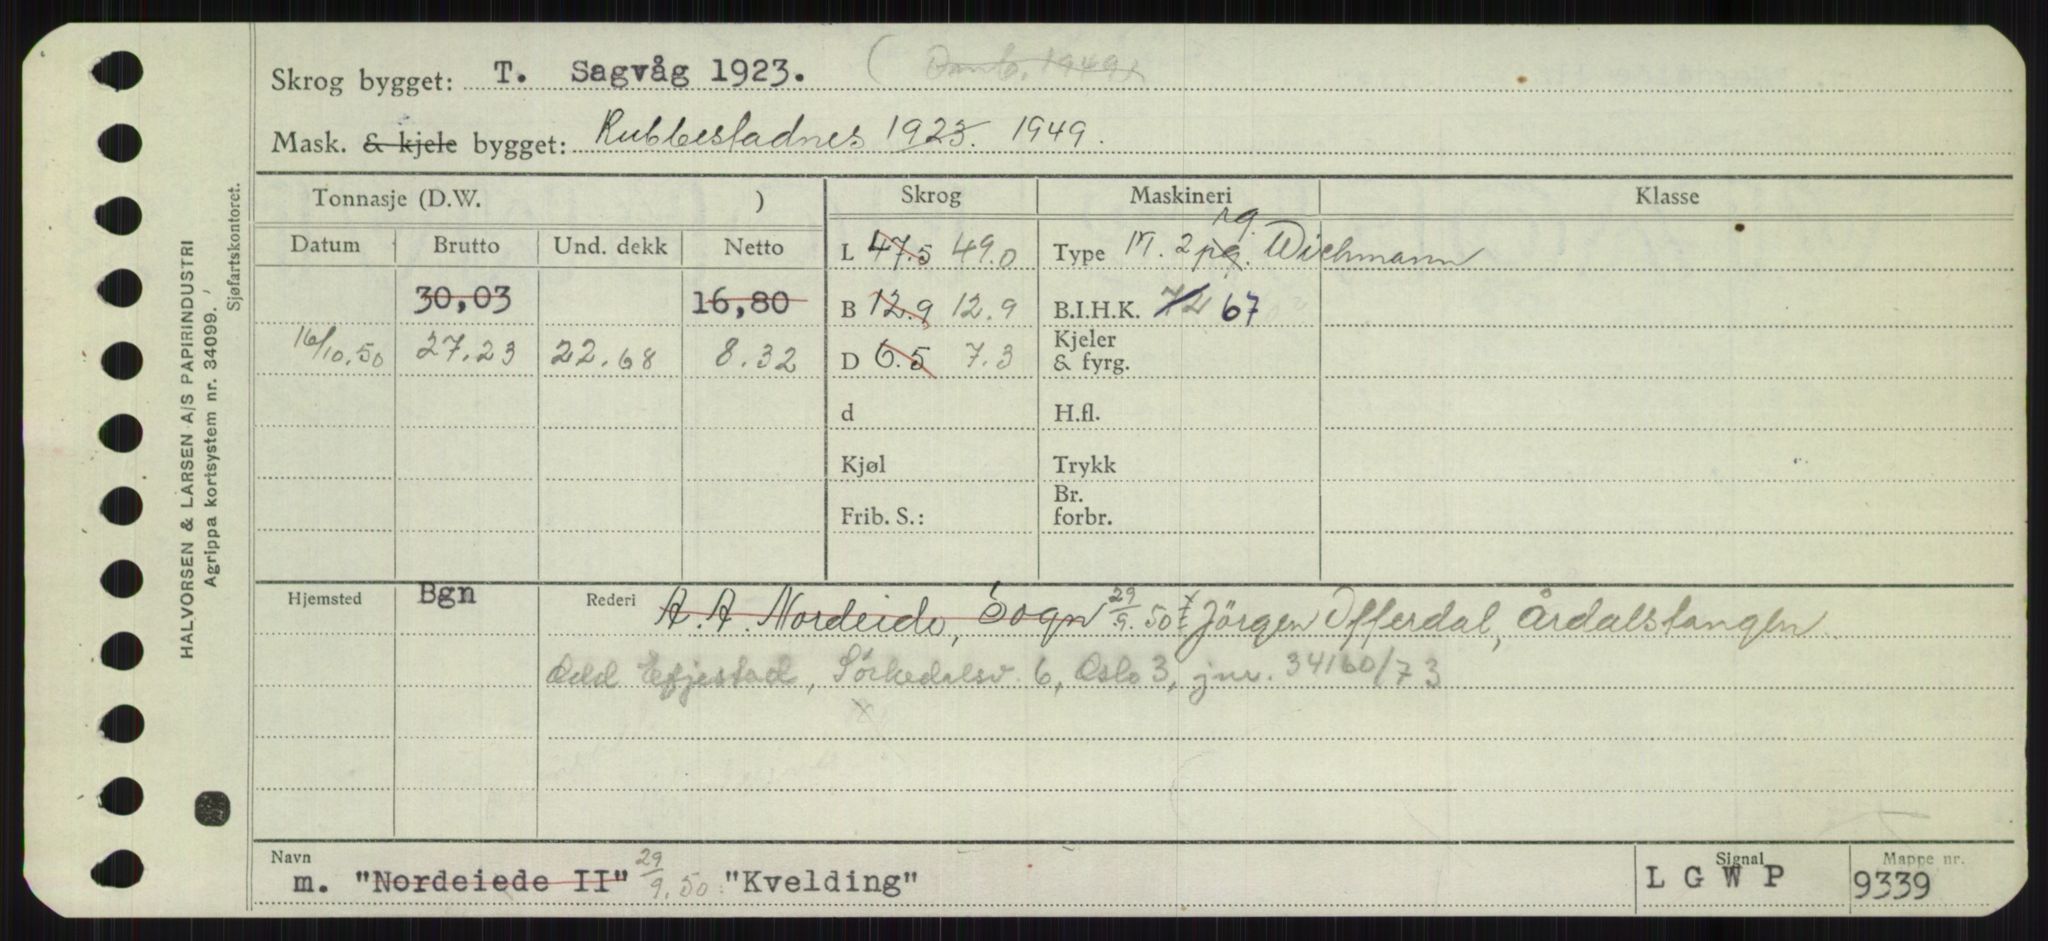 Skrog bygget: T. Sagvåg 1923. (Omb. 1949)
Mask. & kjele bygget: Rubbestadnes 1923. 1949.
Tonnasje (D.W. ) Skrog Maskineri Klasse
Datum Brutto Und. dekk Netto L 47.5 49.0 Type M. 2 pg. rg. Wichmann
30,03 16,80 B 12.9 12.9 B.I.H.K. 72 67
16/10.50 27.23 22.68 8.32 D 6.5 7.3 Kjeler & fyrg.
d H.fl.
Kjøl Trykk
Frib. S.: Br. forbr.
Hjemsted Bgn Rederi A. A. Nordeide, Sogn 29/9.50 Jörgen Offerdal, Årdalstangen
Odd Efjestad, Sörkedalsv. 6, Oslo 3, jnr. 34160/73
Navn Signal Mappe nr.
m. "Nordeiede II" 29/9.50 "Kvelding" L G W P 9339
HALVORSEN & LARSEN A/S PAPIRINDUSTRI
Agrippa kortsystem nr. 34099.
Sjøfartskontoret.